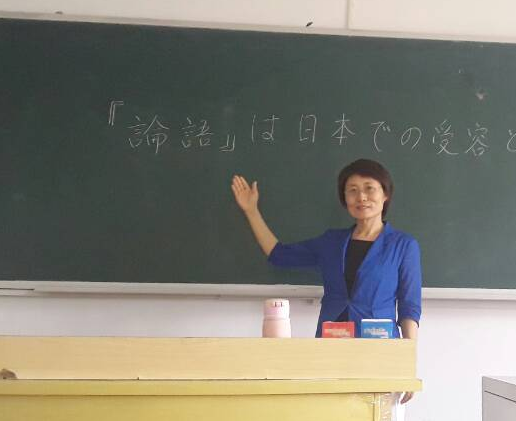 『論語』は日本での受容と